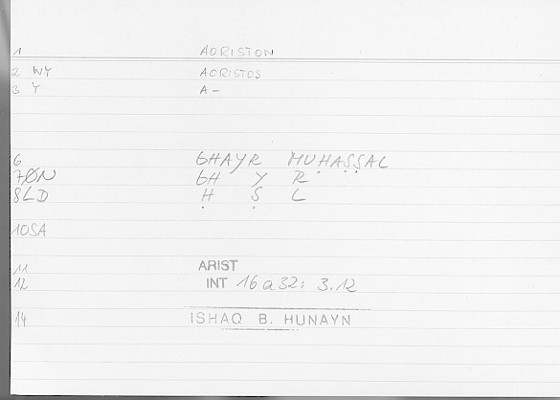 1 AORISTON
2 WY AORISTOS
3 Y A-
6 GHAYR MUḤAṢṢAL
7ØN GH Y R
8LD Ḥ Ṣ L
10SA
11 ARIST
12 INT 16a32: 3.12
14 ISHAQ B. HUNAYN